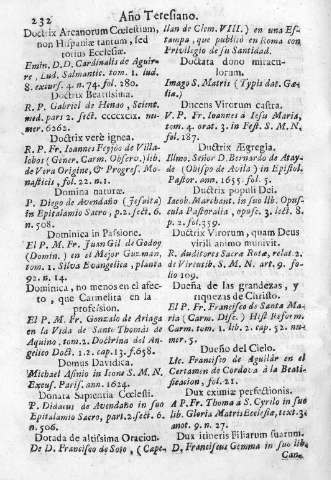 232
Año Teresiano.
Doctrix Arcanorum Cœlestium,
non Hispaniæ tantum, sed
totius Ecclesiæ.
Emin. D.D. Cardinalis de Aguirre,
Lud. Salmantic. tom. 1. lud.
8. excurs. 4. n. 74. fol. 280.
Doctrix Beatissima.
R. P. Gabriel de Henao, Scient.
med. part 2. sect. CCCCXCIX. numer.
6262.
Doctrix verè ignea.
R. P. Fr. Ioannes Feyjòo de Villalobos
(Gener. Carm. Observ.) lib.
de Vera Origine, & Progres. Monasticis,
fol. 22. n. 1.
Domina naturæ.
P. Diego de Avendaño (Jesuita)
in Epitalamio Sacro, p. 2. sect. 6.
n. 508.
Dominica in Passione.
El P. M. Fr. Juan Gil de Godoy
(Domin.) en el Mejor Guzman,
tom. 1. Silva Evangelica, planta
92. n. 14.
Dominica, no menos en el afecto,
que Carmelita en la
profession.
El P. M. Fr. Gonzalo de Arriaga
en la Vida de Santo Thomàs de
Aquino, tom. 2. Doctrina del Angelico
Doct. l. 2. cap. 13. f. 658.
Domus Davidica.
Michael Asinio in Icone S. M. N.
Excus. Paris. ann. 1624.
Donata Sapientia Cœlesti.
P. Didacus de Avendaño in suo
Epitalamio Sacro, part. 2. sect. 6.
n. 506.
Dotada de altissima Oracion.
De D. Francisco de Soto, (Cape-
llan de Clem. VIII.) en una Estampa,
que publicò en Roma con
Privilegio de su Santidad.
Doctata dono miraculorum.
Imago S. Matris (Typis dat. Gallia.)
Ducens Virorum castra.
V. P. Fr. Ioannes à Iesu Maria,
tom. 4. orat. 3. in Fest. S. M. N.
fol. 287.
Ductrix Ægregia.
Illmo. Señor D. Bernardo de Atayde
(Obispo de Avila) in Epistol.
Pastor. ann. 1655. fol. 5.
Ductrix populi Dei.
Iacob. Marchant. in suo lib. Opuscula
Pastoralia, opusc. 3. sect. 8.
p. 2. fol. 359.
Ductrix Virorum, quam Deus
virili animo munivit.
R. Auditores Sacræ Rotæ, relat. 2.
de Virtutib. S. M. N. art. 9. folio
109.
Dueña de las grandezas, y
riquezas de Christo.
El P. Fr. Francisco de Santa Maria
(Carm. Disc.) Hist Reform.
Carm. tom. 1. lib. 2. cap. 52. numer.
5.
Dueño del Cielo.
Lic. Francisco de Aguilar en el
Certamen de Cordova à la Beatificacion,
fol. 21.
Dux eximiæ perfectionis.
A P. Fr. Thoma à S. Cyrilo in suo
lib. Gloria Matris Ecclesiæ, text. 3.
anot. 9. n. 27.
Dux itineris Filiarum suarum.
D. Franciscus Gemma in suo lib.
Can-